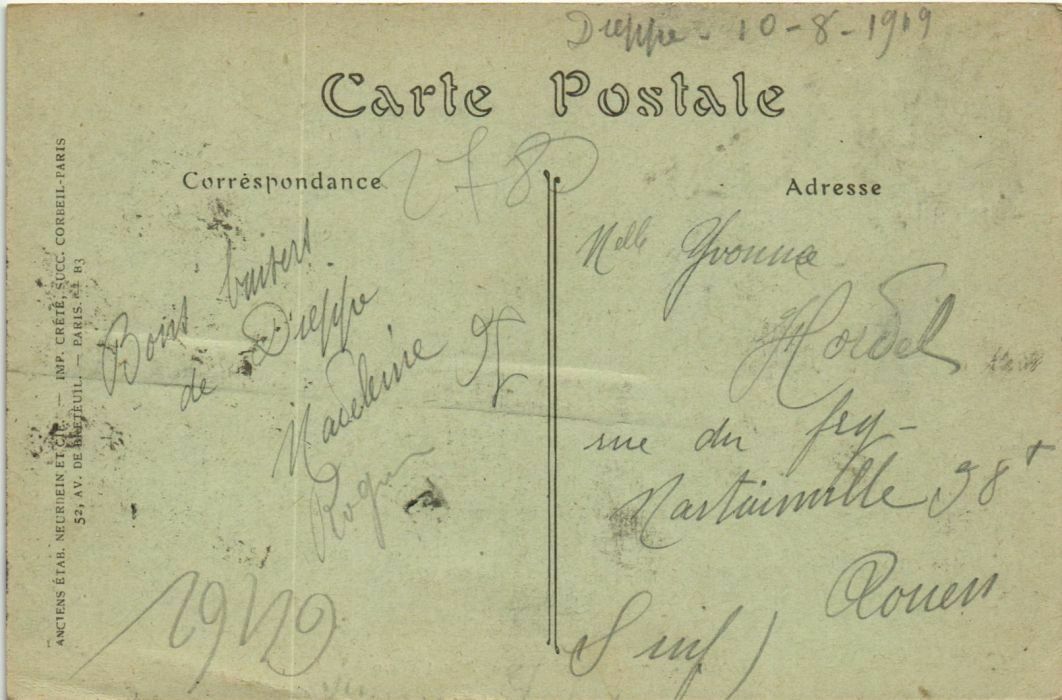 Dieppe - 10-8-1919
Carte Postale
Correspondance
Adresse
2780
Bons baisers
de Dieppe
Madeleine
Roger
Melle Yvonne
Hordel
rue du fbg-
Martainville 98
Rouen
S Inf)
ANCIENS ÉTAB. NEURDEIN ET CIE. — IMP. CRÉTÉ, SUCC. CORBEIL-PARIS
52, AV. DE BRETEUIL. — PARIS.